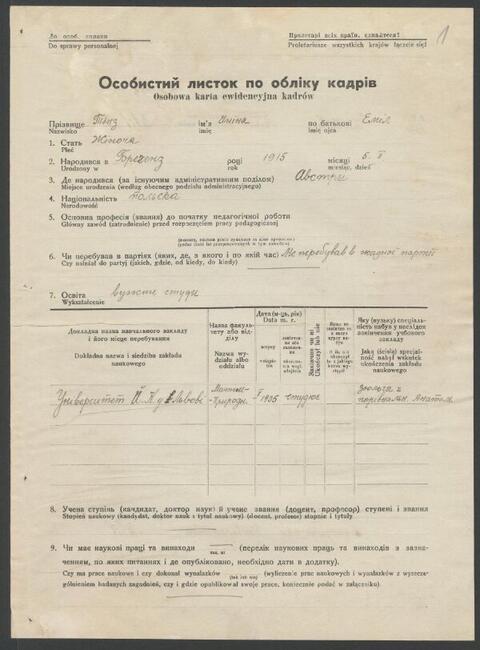 До особ. справи
Do sprawy personalnej
Пролетарі всіх країн, єднайтеся!
Proletariusze wszystkich krajów łączcie się!
1
Особистий листок по обліку кадрів
Osobowa karta ewidencyjna kadrów
Прізвище ім'я по батькові Еміл
Nazwisko imię imię ojca
1. Стать Жіноча
Płeć
2. Народився в році 1915 місяці 5. V
Urodzony w roku miesiąc, dzień
3. Де народився (за існуючим адміністративним поділом) Австрія
Miejsce urodzenia (według obecnego podziału administracyjnego)
4. Національність польська
Narodowość
5. Основна професія (звання) до початку педагогічної роботи
Główny zawód (zatrudnienie) przed rozpoczęciem pracy pedagogicznej
6. Чи перебував в партіях (яких, де, з якого і по який час) Не перебував в жадній партії
Czy należał do partii (jakich, gdzie, od kiedy, do kiedy)
7. Освіта вузкше студ.
Wykształcenie
Докладна назва навчального закладу і його місце перебування
Dokładna nazwa i siedziba zakładu naukowego
Назва факультету або відділу
Nazwa wydziału albo oddziału
Дата (м-ць, рік)
Data m. r.
вступу
Закінчив чи ні
Ukończył lub nie
Яку (вузьку) спеціальність набув у наслідок закінчення учбового закладу
Jaką (ścisłą) specjalność nabył wskutek ukończenia zakładu naukowego
Університет Й. К. у Львові
Природн. 1935 студіює
Зоольогія і
порівняльн. Анатом.
8. Учена ступінь (кандидат, доктор наук) й учене звання (доцент, професор) ступені і звання
Stopień naukowy (kandydat, doktor nauk i tytuł naukowy) (docent, profesor) stopnie i tytuły
9. Чи має наукові праці та винаходи (перелік наукових праць та винаходів з зазначенням, по яких питаннях і де опубліковано, необхідно дати в додатку).
так, ні
Czy ma prace naukowe i czy dokonał wynalazków (wyliczenie prac naukowych i wynalazków z wyszczególnieniem badanych zagadnień, czy i gdzie opublikował swoje prace, koniecznie podać w załączniku).
(tak lub nie)